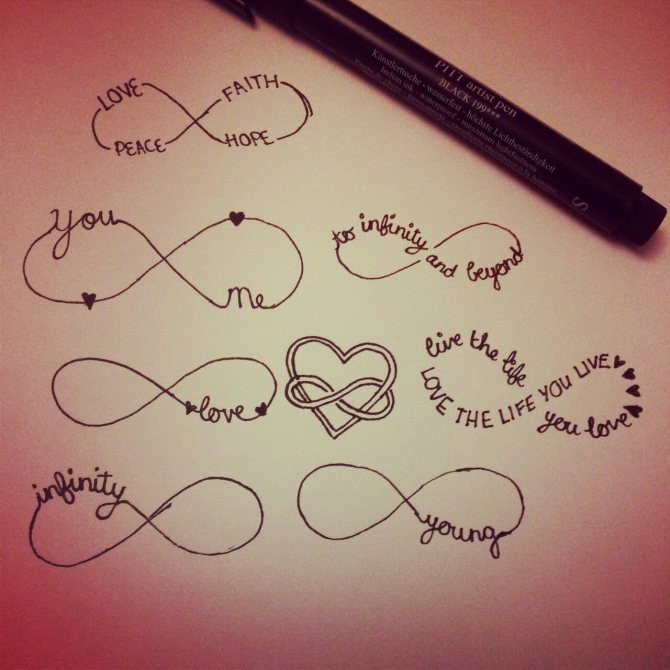 LOVE FAITH
PEACE HOPE
PITT artist pen
BLACK 199***
Künstlertusche - wasserfest - höchste Lichtbeständigkeit
Indian ink - waterproof - maximum lightfastness
S
you
me
to infinity
and beyond
love
live the life
LOVE THE LIFE YOU LIVE
you love
infinity
young